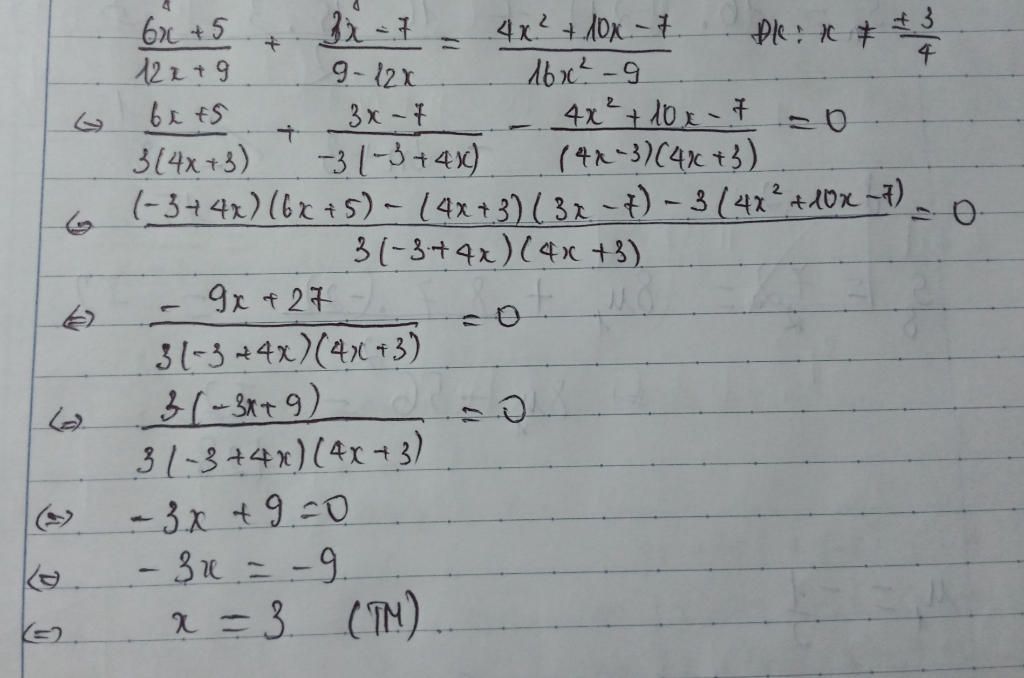 (6x + 5)/(12x + 9) + (3x - 7)/(9 - 12x) = (4x² + 10x - 7)/(16x² - 9) ĐK : x ≠ ±3/4
⇔ (6x + 5)/(3(4x + 3)) + (3x - 7)/(-3(-3 + 4x)) - (4x² + 10x - 7)/((4x - 3)(4x + 3)) = 0
⇔ ((-3 + 4x)(6x + 5) - (4x + 3)(3x - 7) - 3(4x² + 10x - 7))/(3(-3 + 4x)(4x + 3)) = 0
⇔ (-9x + 27)/(3(-3 + 4x)(4x + 3)) = 0
⇔ (3(-3x + 9))/(3(-3 + 4x)(4x + 3)) = 0
⇔ -3x + 9 = 0
⇔ -3x = -9
⇔ x = 3 (TM).